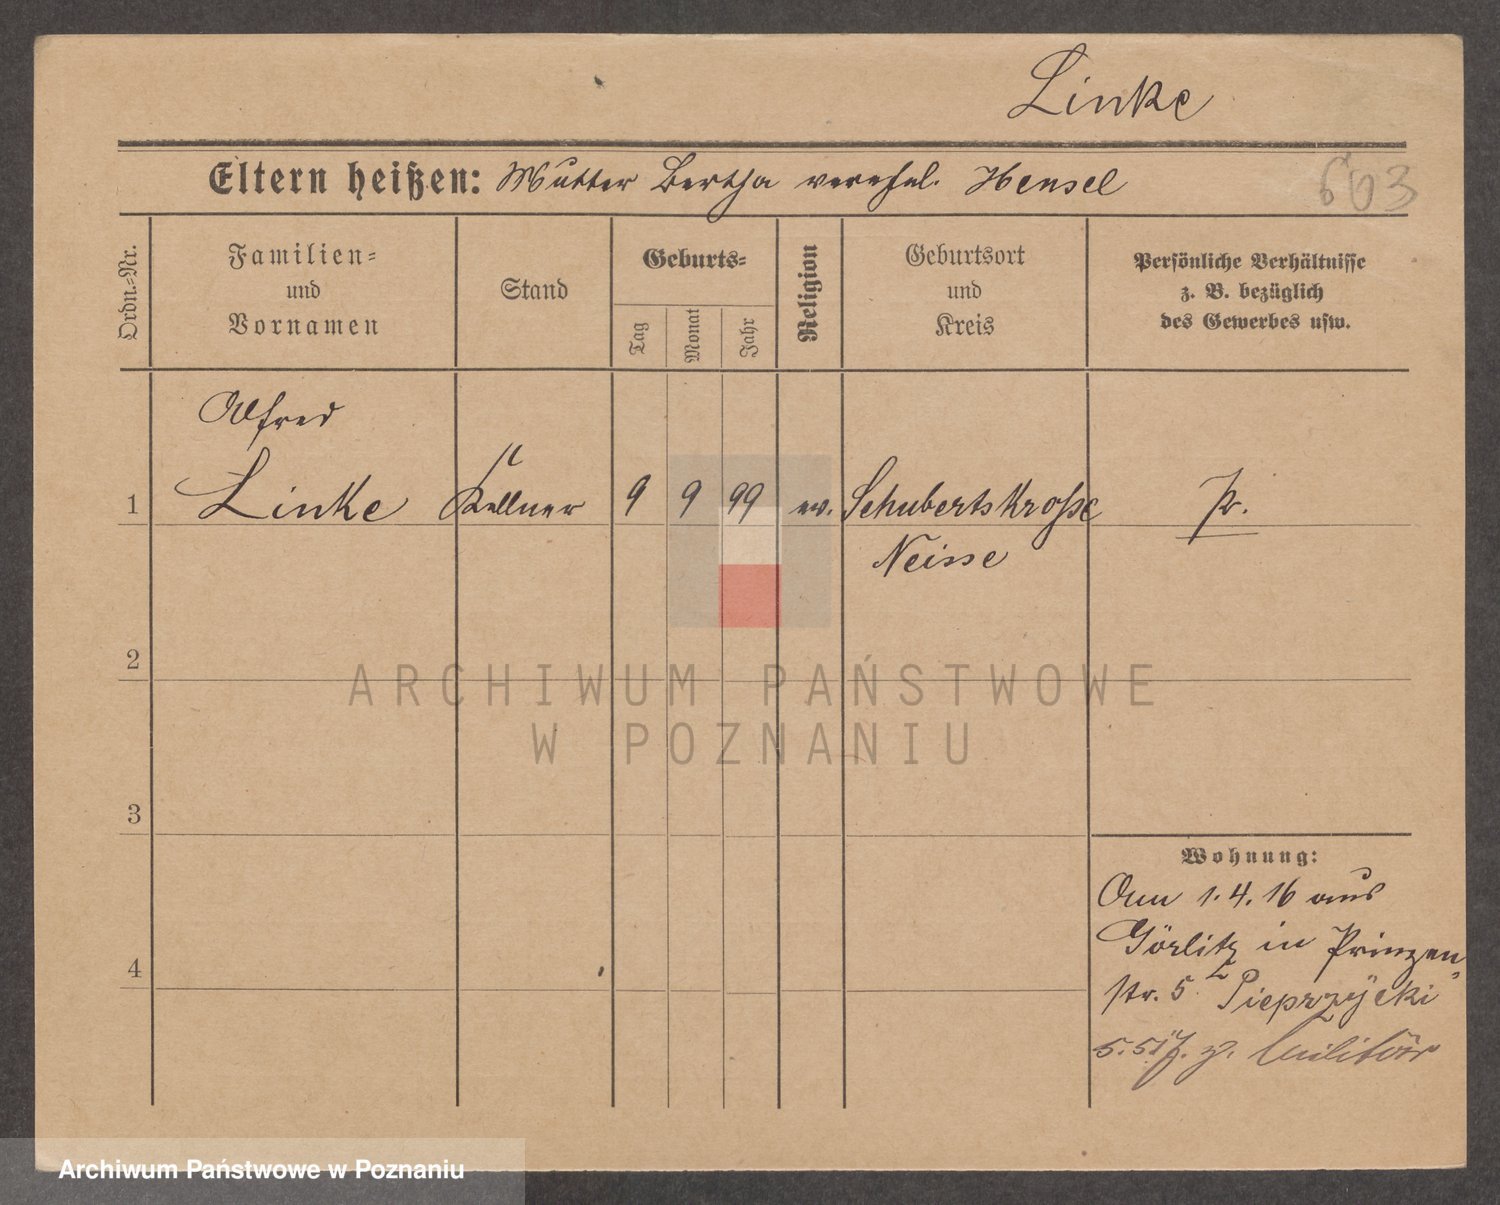 Linke
Eltern heißen: Mutter Bertha verehel. Hensel
603
Ordn.=Nr.
Familien=
und
Vornamen
Stand
Geburts=
Tag
Monat
Jahr
Religion
Geburtsort
und
Kreis
Persönliche Verhältnisse
z. B. bezüglich
des Gewerbes usw.
Alfred
1 Linke Kellner 9 9 99 ev. Schubertskrosse pr.
Neisse
2
ARCHIWUM PAŃSTWOWE
W POZNANIU
3
Wohnung:
Am 1.4.16 aus
Görlitz in Prinzen
4
str. 5 Pieprzycki
z. Militär
Archiwum Państwowe w Poznaniu